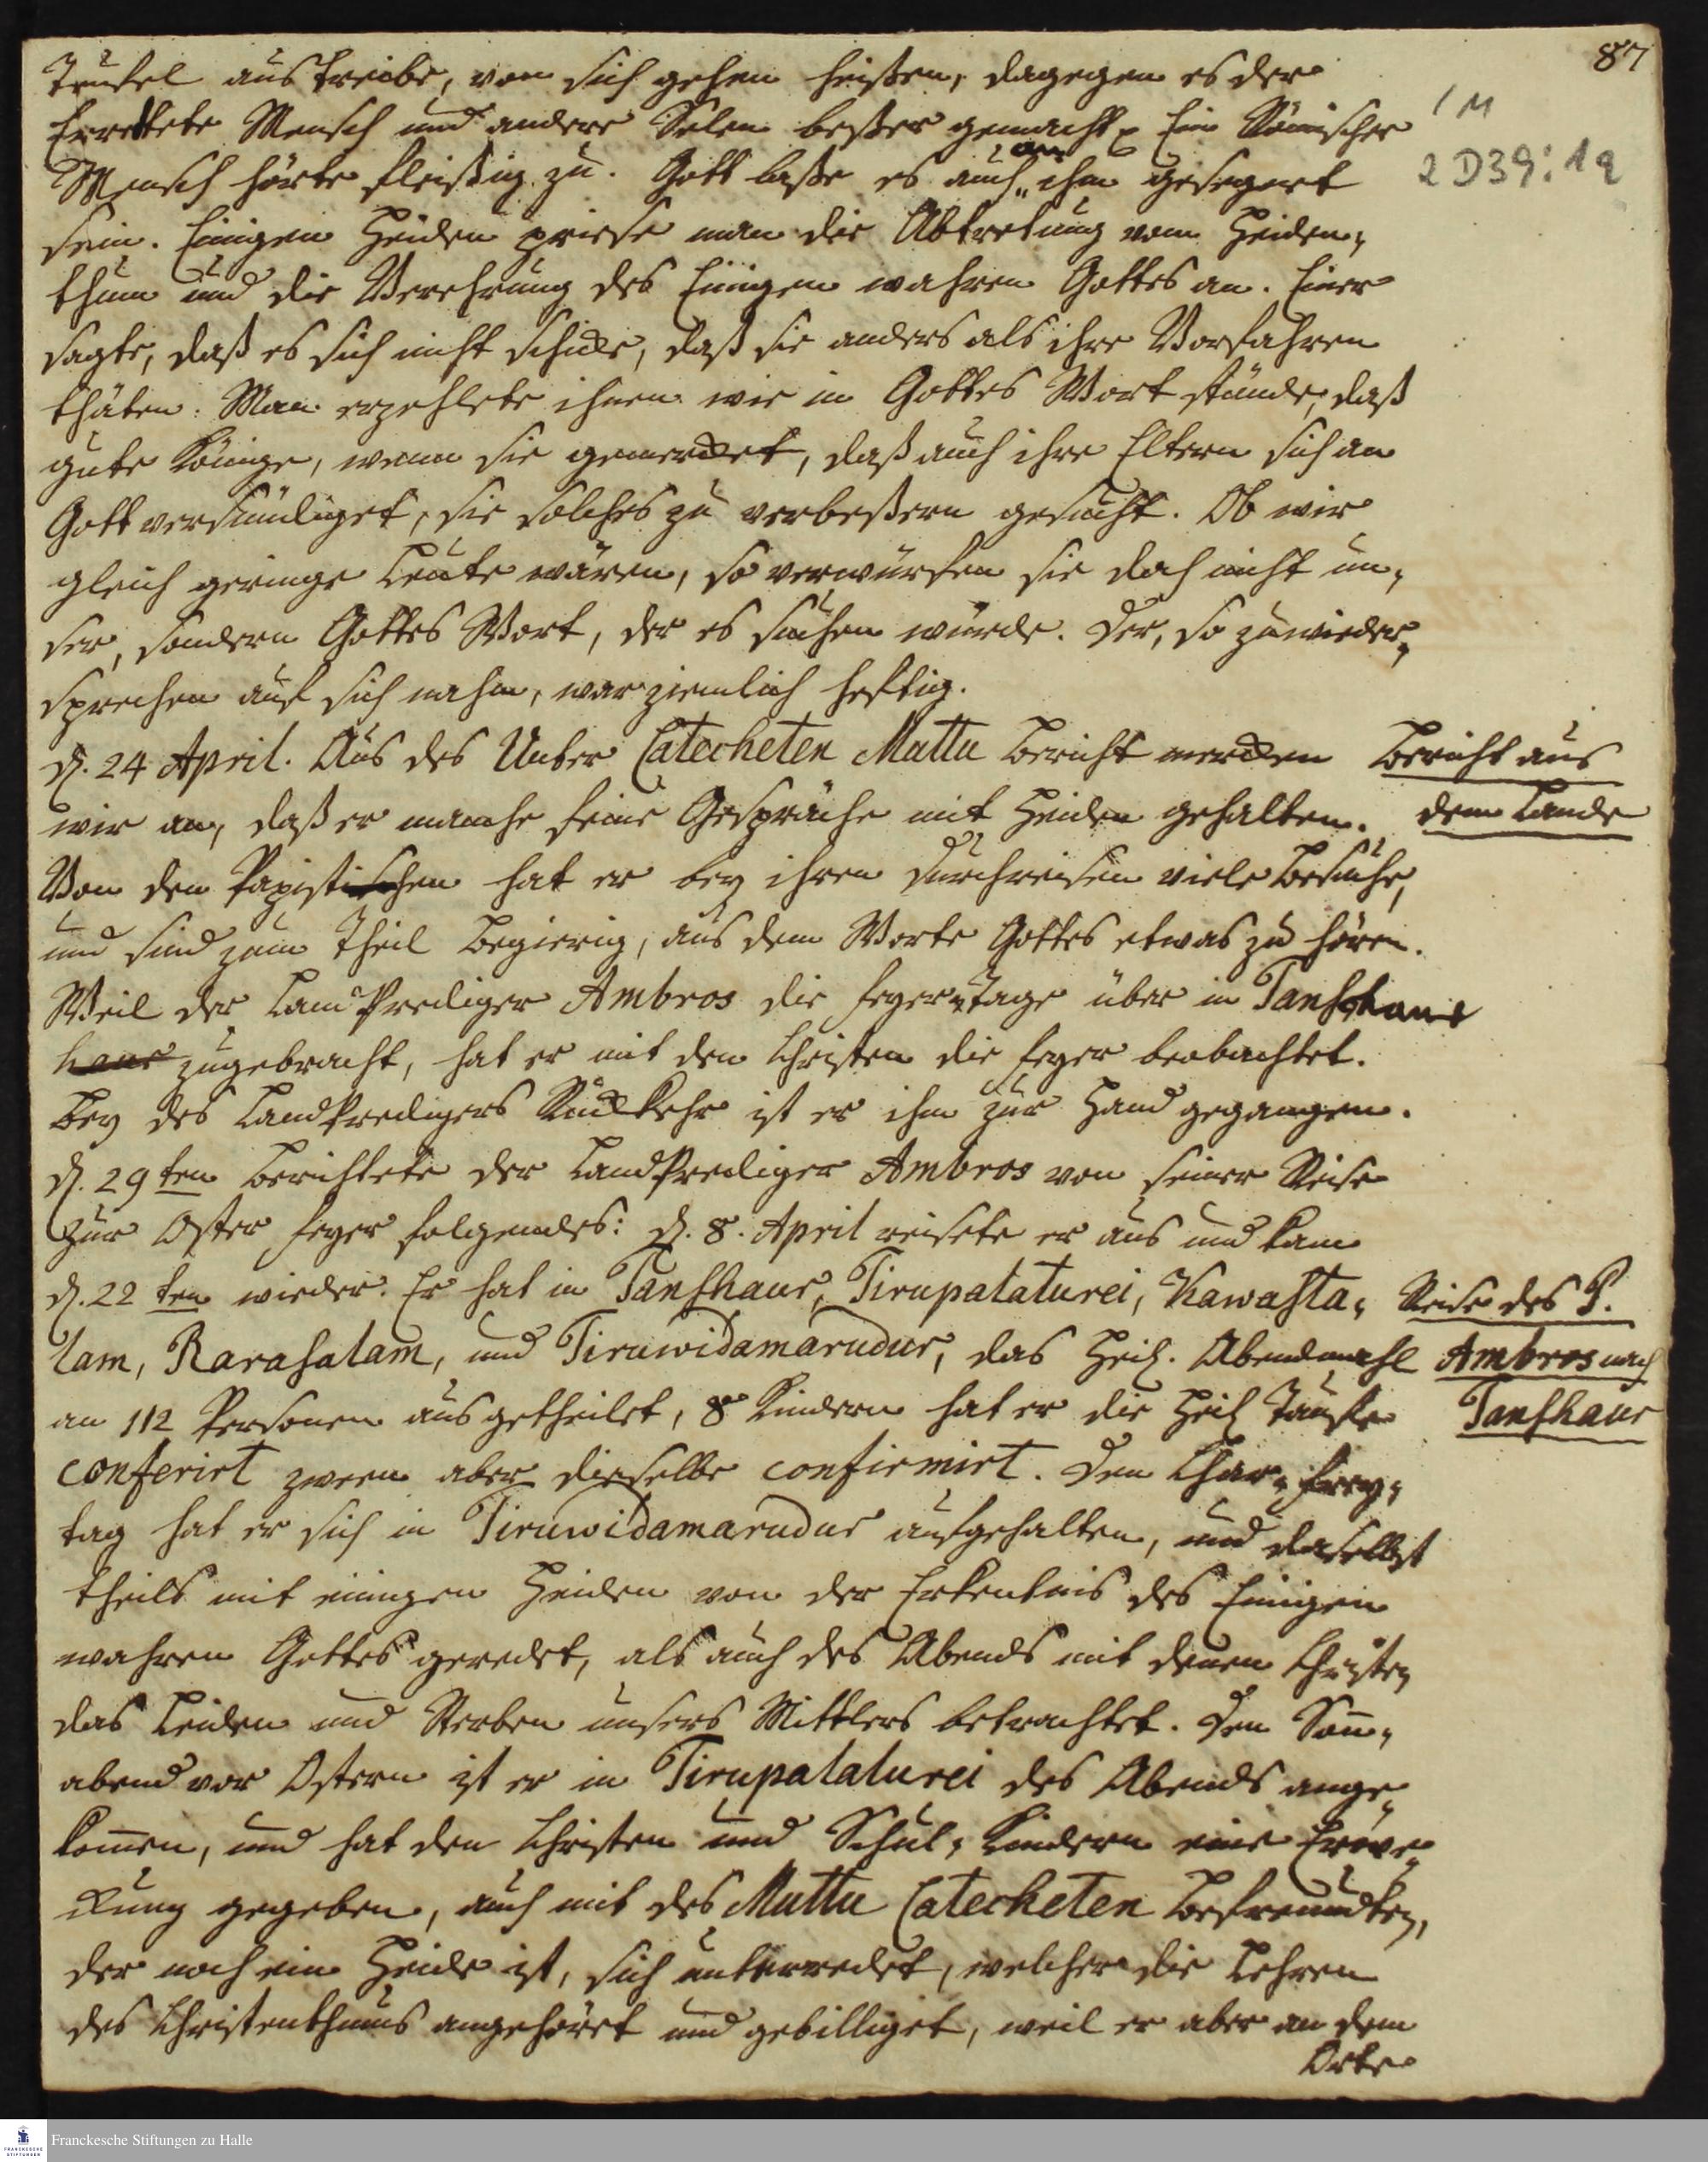 87
Teufel austreibe, von sich gehen heißen, dagegen es der
errettete Mensch und andere Selen beßer gemacht p Ein Römischer
1 M
2 D39: 19
Mensch hörte fleißig zu. Gott laße es auch an ihm gesegnet
sein. Einigen Heiden priese man die Abtretung vom Heiden,
thum und die Verehrung des Einigen wahren Gottes an. Einer
sagte, daß es sich nicht schicke, daß sie anders als ihre Vorfahren
thäten. Man erzehlete ihnen wie in Gottes Wort stünde, daß
gute Könige, wenn sie gemercket, daß auch ihre Eltern sich an
Gott versündiget, sie solches zu verbeßern gesucht. Ob wir
gleich geringe Leute wären, so verwürfen sie doch nicht un,
ser, sondern Gottes Wort, der es suchen würde. Der, so zuwieder,
sprechen auf sich nahm, war ziemlich heftig.
d. 24 April. Aus des Unter Catecheten Muttu Bericht mercken
Bericht aus
wir an, daß er manche feine Gespräche mit Heiden gehalten.
dem Lande
Von den Papistischen hat er bey ihren Durchreisen viele Besuche,
und sind zum Theil begierig, aus dem Worte Gottes etwas zu hören.
Weil der LandPrediger Ambros die Feyer, Tage über in Tanshaur
haur zugebracht, hat er mit den Christen die Feyer beobachtet.
Bey des LandPredigers Rückkehr ist er ihm zur Hand gegangen.
d. 29ten berichtete der LandPrediger Ambros von seiner Reise
zur Oster Feyer folgendes: d. 8. April reisete er aus und kam
d. 22ten wieder. Er hat in Tanshaur, Tirupalaturei, Kawasta,
Reise des P.
lam, Rarasalam, und Tiruwidamarudur, das Heil. Abendmahl
Ambros nach
an 112 Personen ausgetheilet, 8 Kindern hat er die Heil Taufe
Tanshaur
conferirt zween aber dieselbe confirmirt. Den Char, Frey,
tag hat er sich in Tiruwidamarudur aufgehalten, und daselbst
theils mit einigen Heiden von der Erkentnis des Einigen
wahren Gottes geredet, als auch des Abends mit denen Christen
das Leiden und Sterben unsers Mittlers betrachtet. Den Soñ,
abend vor Ostern ist er in Tirupalaturei des Abends ange,
kom̃en, und hat den Christen und Schul, Kindern eine Erwe,
ckung gegeben, auch mit des Muttu Catecheten Befreundten,
der noch ein Heide ist, sich unterredet, welcher die Lehren
des Christenthums angehöret und gebilliget, weil er aber an dem
Orte
Franckesche Stiftungen zu Halle